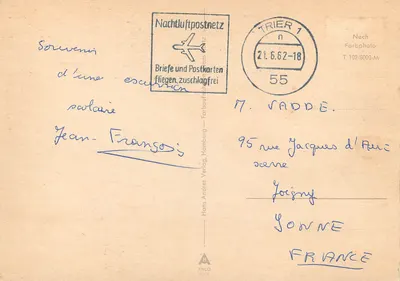 Nachtluftpostnetz
Briefe und Postkarten
fliegen zuschlagfrei
TRIER 1
n
21.6.62-18
55
Souvenir
d'une excursion
scolaire
Jean-François
M. VADDE.
95 rue Jacques d'Au
xerre
Joigny
YONNE
FRANCE
Nach
Farbphoto
Hans Andres Verlag, Hamburg